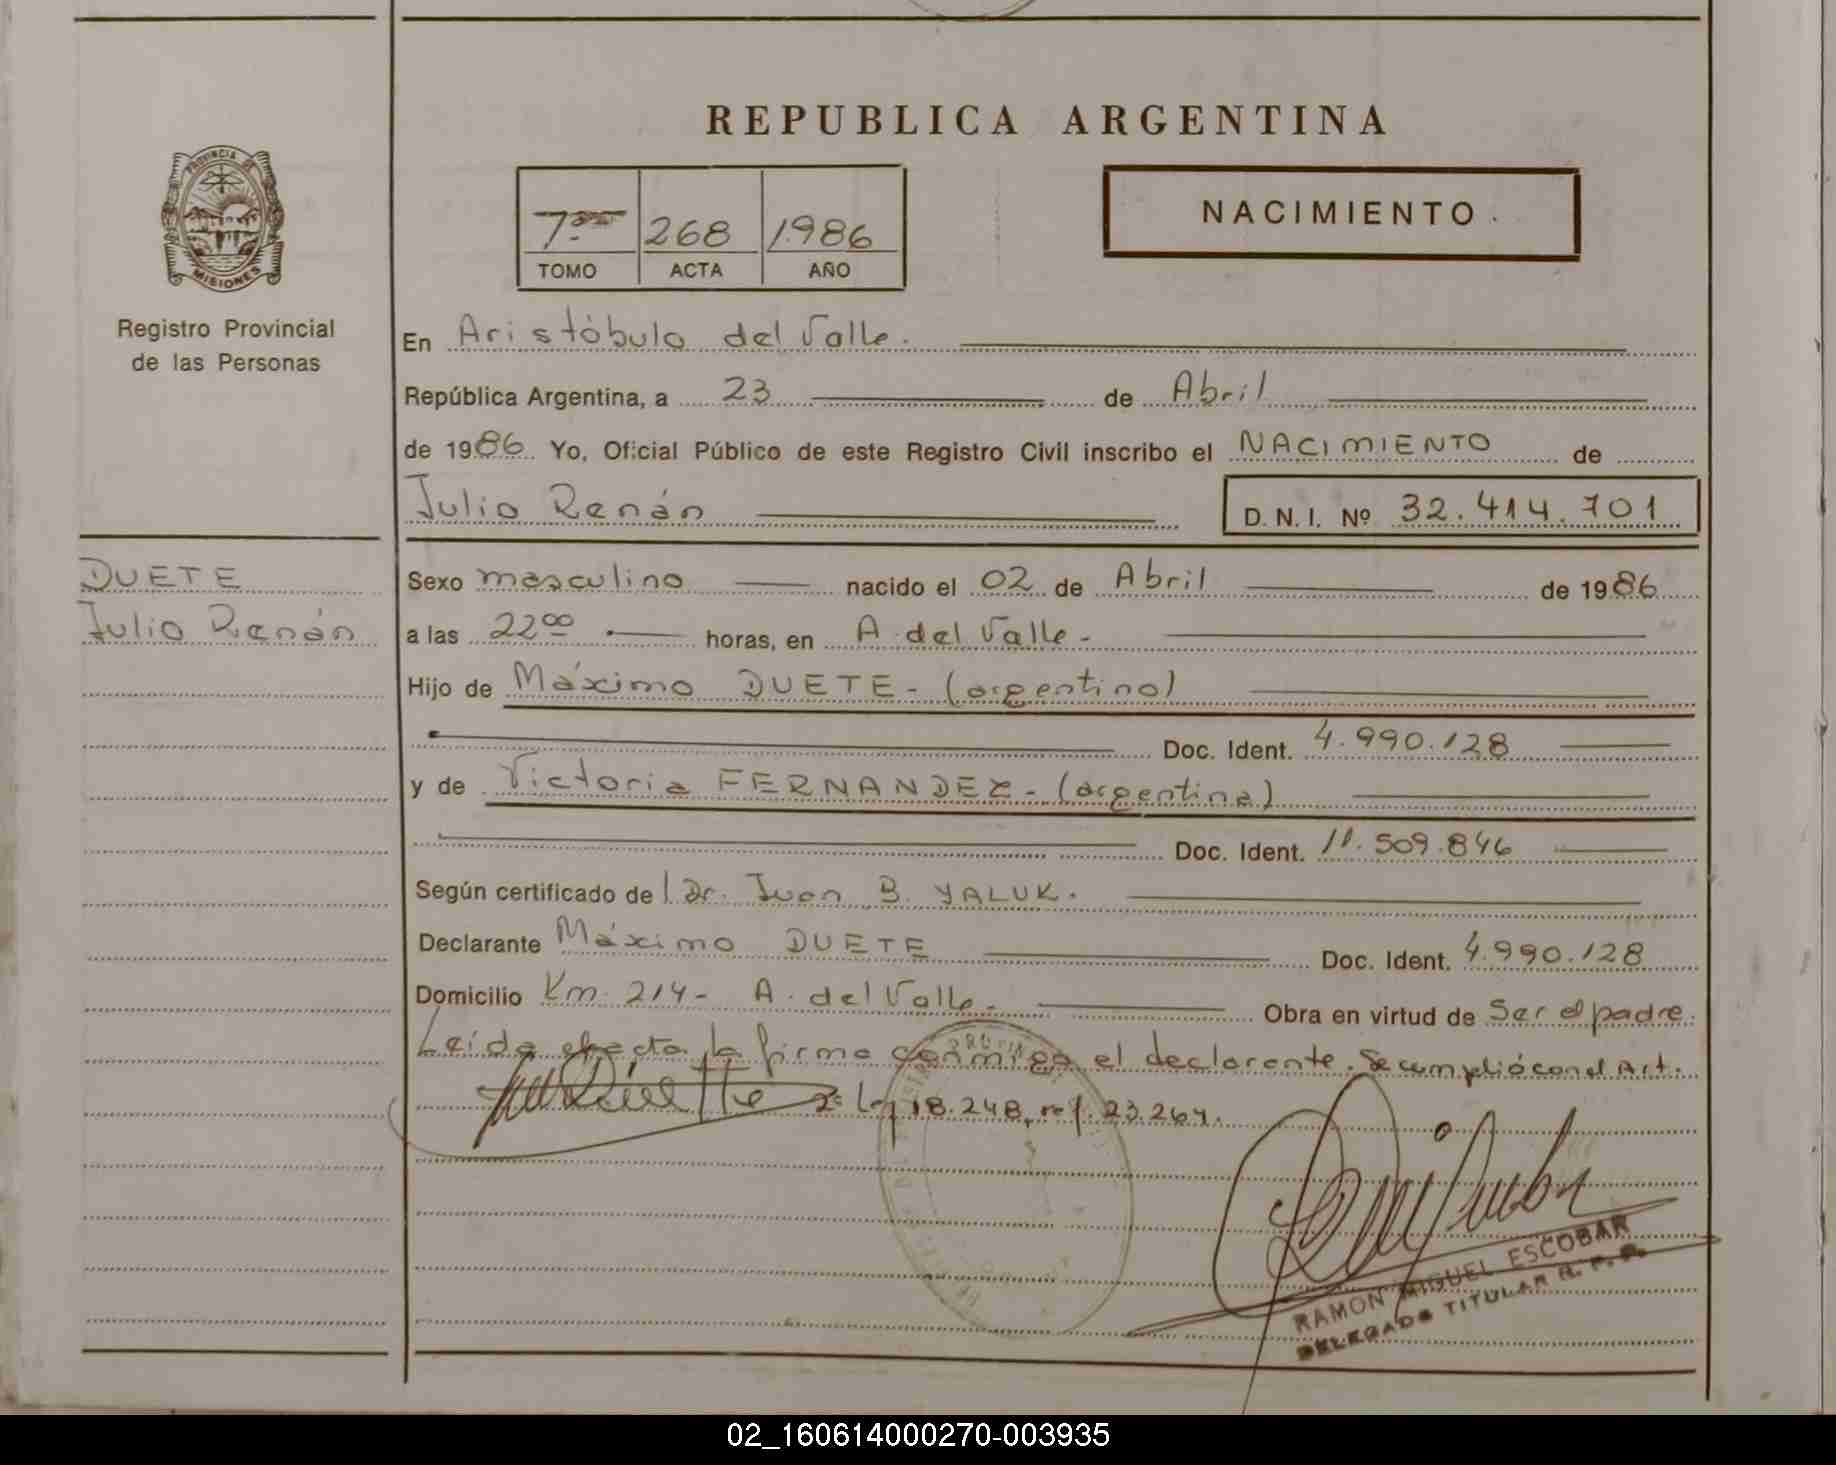 REPUBLICA ARGENTINA
PROVINCIA DE
MISIONES
Registro Provincial
de las Personas
268 1986
TOMO ACTA AÑO
NACIMIENTO
En Aristóbulo del Valle.
República Argentina, a 23 de Abril
de 1986 Yo, Oficial Público de este Registro Civil inscribo el NACIMIENTO de
Julio Renán D. N. I. Nº 32.414.701
DUETE
Julio Renán
Sexo masculino nacido el 02 de Abril de 1986
a las 22⁰⁰ horas, en A. del Valle-
Hijo de Máximo DUETE- (argentino)
Doc. Ident. 4.990.128
y de Victoria FERNANDEZ- (argentina)
Doc. Ident. 11.509.846
Según certificado de Dr. Juan B. YALUK.
Declarante Máximo DUETE Doc. Ident. 4.990.128
Domicilio Km. 214- A. del Valle- Obra en virtud de Ser el padre.
Leída el acta la firma conmigo el declarante. Se cumplió con el Art.
2º Ley 18.248, ref. 23.264.
RAMON MIGUEL ESCOBAR
DELEGADO TITULAR R. P. P.
02_160614000270-003935